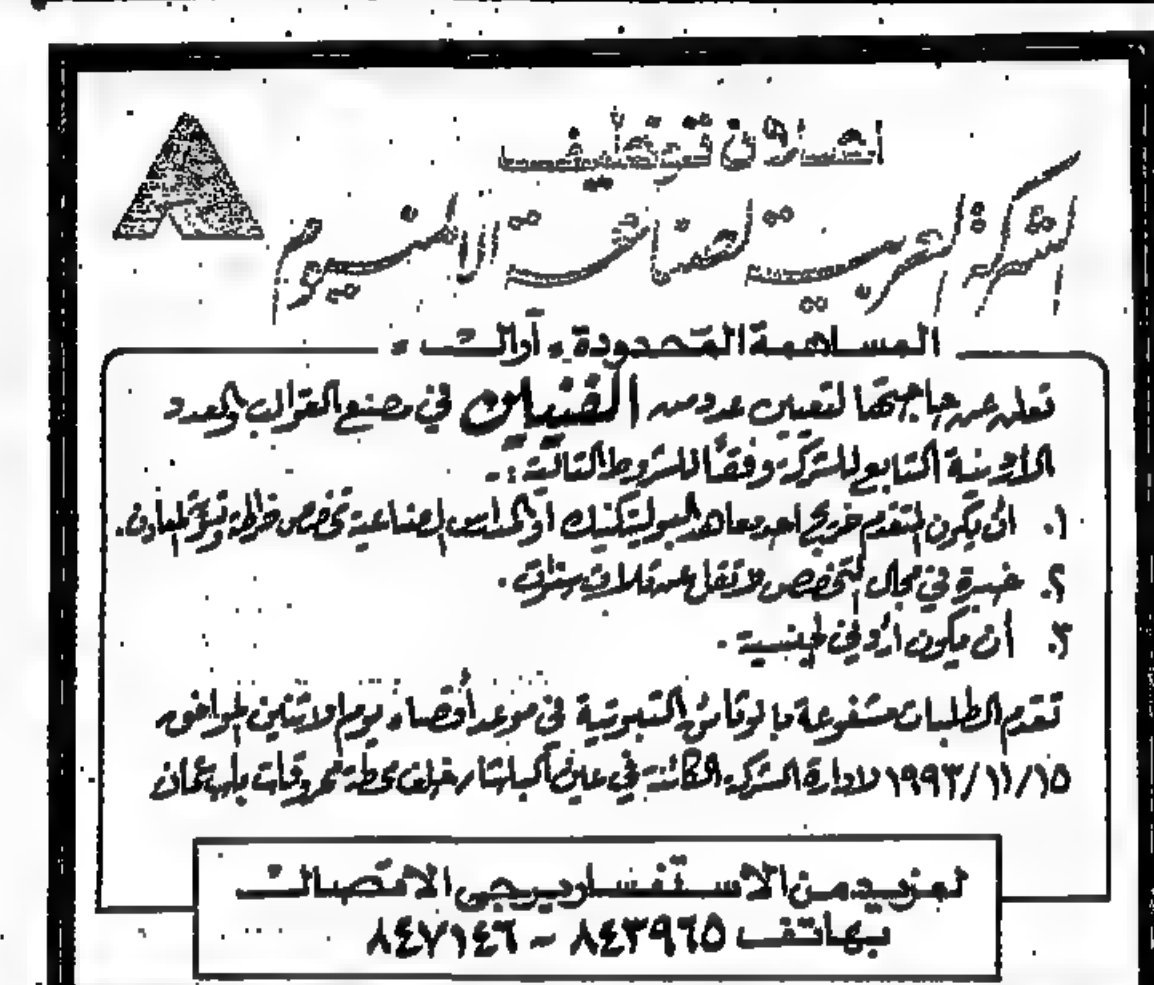 اعلان توظيف
الشركة العربية لصناعة الالمنيوم
المساهمة المحدودة « آرال »
تعلن عن حاجتها لتعيين عدد من الفنيين في مصنع القوالب والعدد
التابع للشركة وفقاً للشروط التالية :-
١. ان يكون المتقدم خريج احد معاهد البوليتكنيك او المدارس الصناعية تخصص خراطة وتسوية المعادن.
٢. خبرة في مجال التخصص لا تقل عن ثلاث سنوات.
٣. أن يكون اردني الجنسية.
تقدم الطلبات مشفوعة بالوثائق الثبوتية في موعد أقصاه يوم الاثنين الموافق
١٩٩٣/١١/١٥ لادارة الشركة الكائنة في عين الباشا خلف محطة محروقات باب عمان
لمزيد من الاستفسار يرجى الاتصال
بهاتف ٨٤٣٩٦٥ - ٨٤٧١٤٦